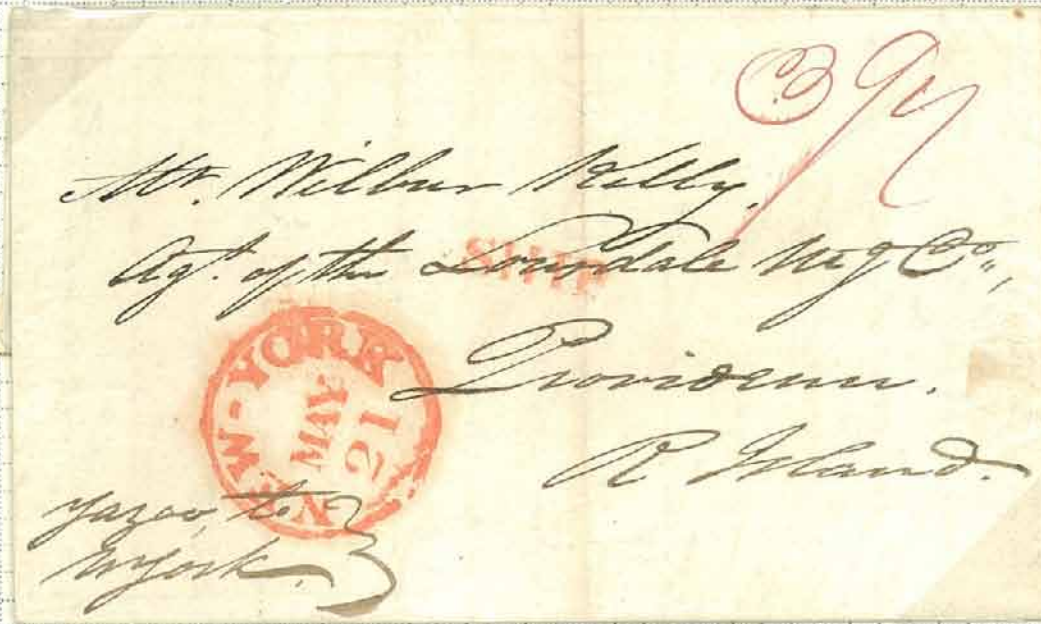 Mr. Wilbur Kelly,
Agt. of the Lonsdale Mfg Co.,
SHIP
Providence.
R Island.
NEW-YORK
MAY
21
Yazoo, to
N York.